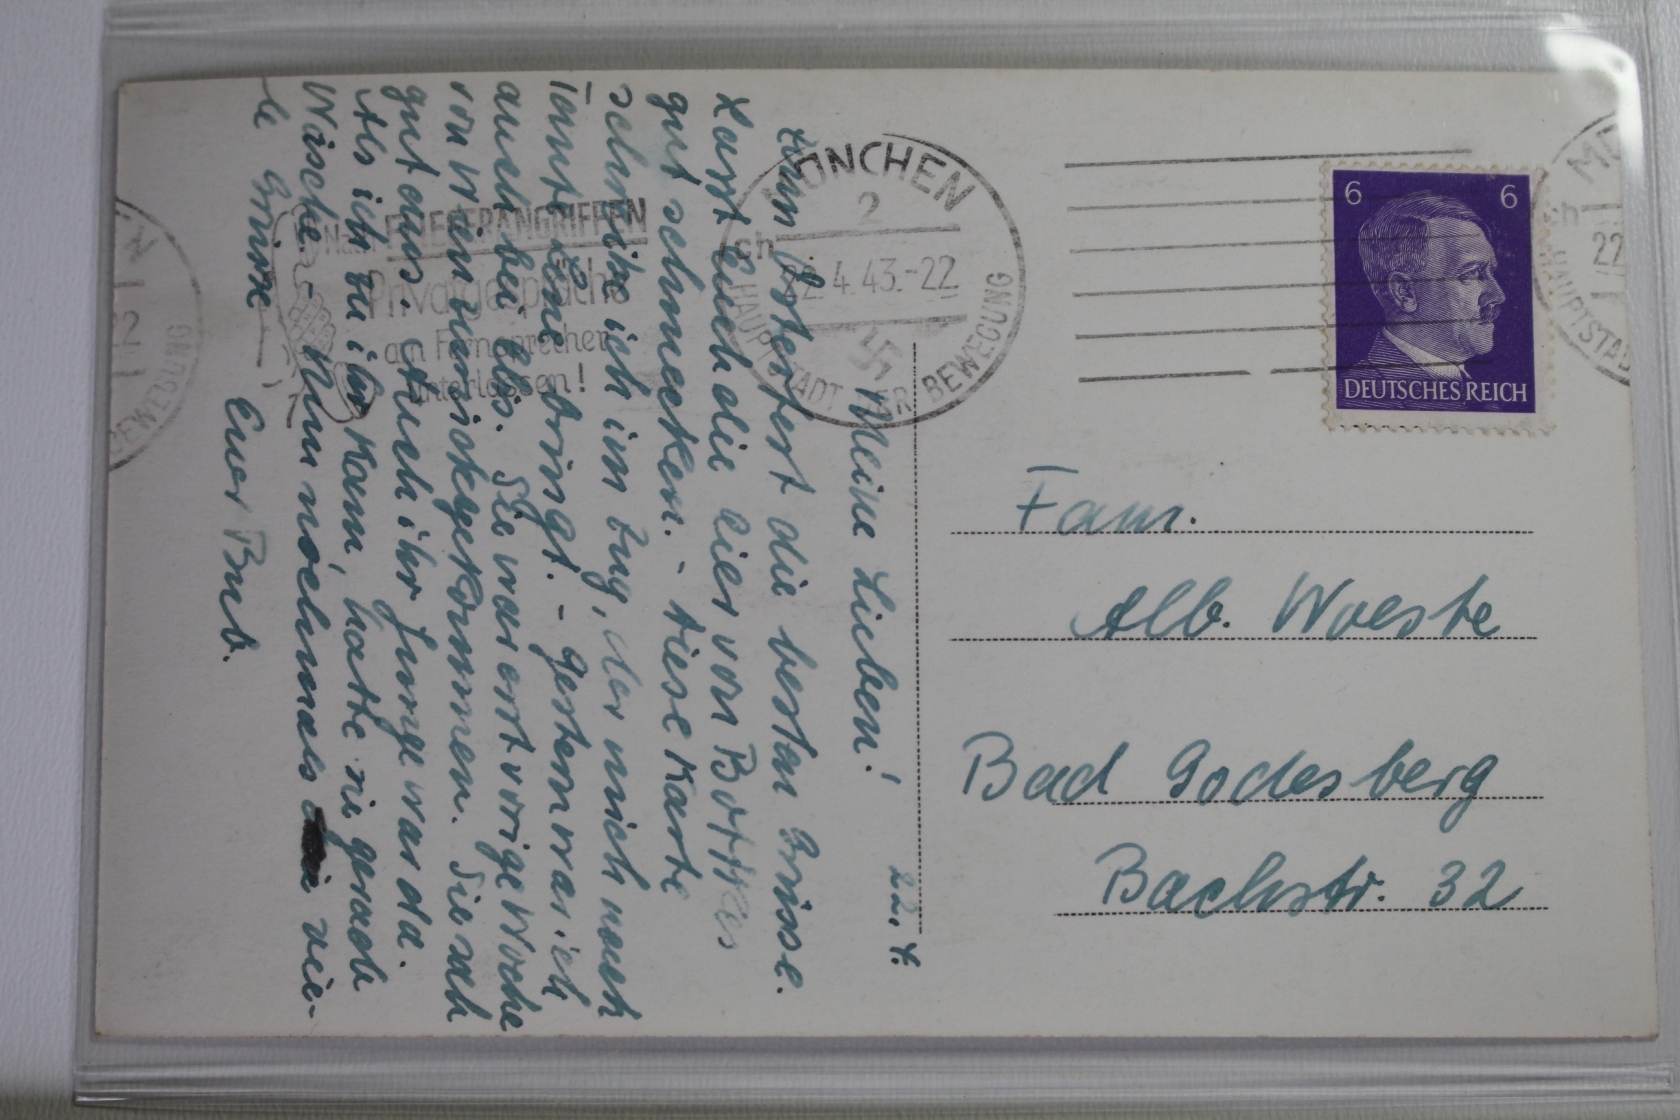 22. 4.
Meine Lieben!
Zum Osterfest die besten Grüsse.
Lasst Euch die Eier von
gut schmecken. - Diese Karte
schreibe ich im Zug, der mich nach
bringt. - Gestern war ich
auch bei Sie war erst vorige Woche
von zurückgekommen. Sie sah
gut aus. Auch ihr Junge war da.
Als ich zu ihr kam, hatte sie gerade
Wäsche - Nun nochmals vie-
le Grüsse
Euer Bub.
Nach FLIEGERANGRIFFEN
Privatgespräche
am Fernsprecher
unterlassen!
MÜNCHEN
2
ch
22. 4. 43.-22
HAUPTSTADT DER BEWEGUNG
6 6
DEUTSCHES REICH
ch
22
HAUPTSTAD
BEWEGUNG
Fam.
Alb. Woeste
Bad Godesberg
Bachstr. 32